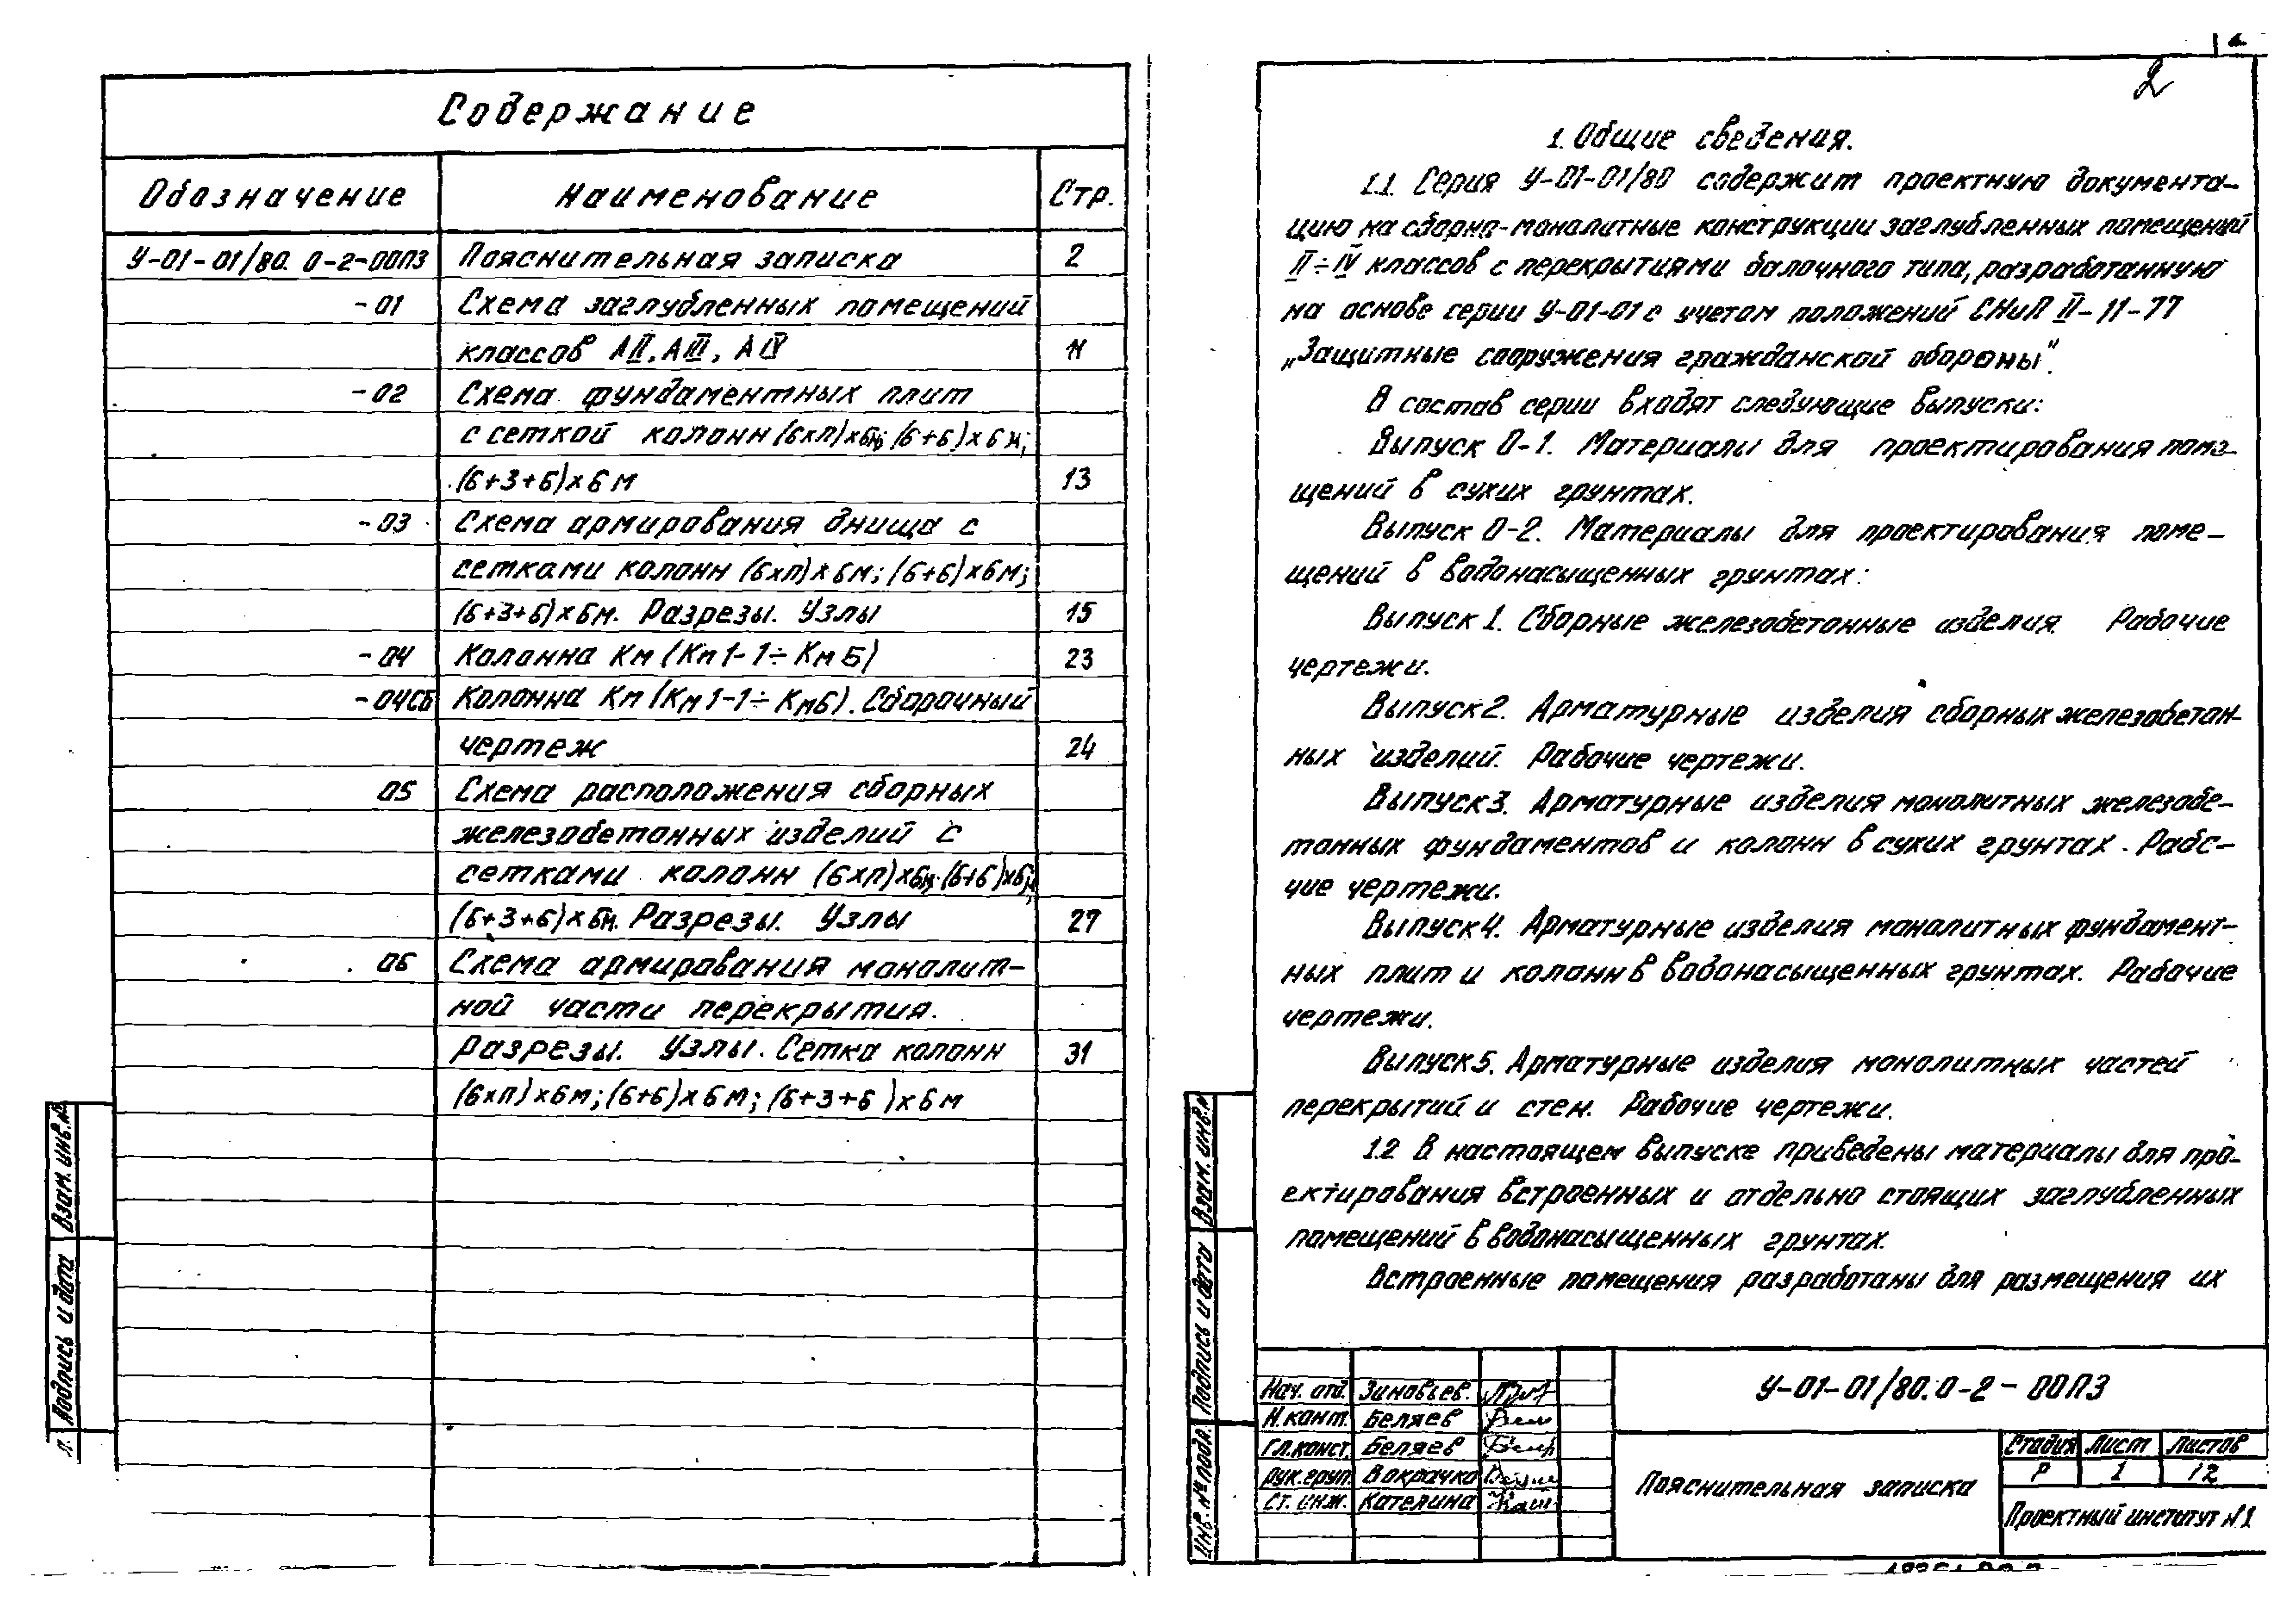 Содержание
Обозначение Наименование Стр.
У-01-01/80. 0-2-00ПЗ Пояснительная записка 2
-01 Схема заглубленных помещений
классов АII, АIII, АIV 11
-02 Схема фундаментных плит
с сеткой колонн (6хп)х6м; (6+6)х6м;
(6+3+6)х6м 13
-03 Схема армирования днища с
сетками колонн (6хп)х6м; (6+6)х6м;
(6+3+6)х6м. Разрезы. Узлы 15
-04 Колонна Км (Км1-1÷Км6) 23
-04СБ Колонна Км (Км1-1÷Км6). Сборочный
чертеж 24
05 Схема расположения сборных
железобетонных изделий с
сетками колонн (6хп)х6м; (6+6)х6м;
(6+3+6)х6м. Разрезы. Узлы 27
06 Схема армирования монолит-
ной части перекрытия.
Разрезы. Узлы. Сетка колонн 31
(6хп)х6м; (6+6)х6м; (6+3+6)х6м
Взам. инв.№
Подпись и дата
2
1. Общие сведения.
1.1. Серия У-01-01/80 содержит проектную документа-
цию на сборно-монолитные конструкции заглубленных помещений
II÷IV классов с перекрытиями балочного типа, разработанную
на основе серии У-01-01 с учетом положений СНиП II-11-77
„Защитные сооружения гражданской обороны".
В состав серии входят следующие выпуски:
Выпуск 0-1. Материалы для проектирования поме-
щений в сухих грунтах.
Выпуск 0-2. Материалы для проектирования поме-
щений в водонасыщенных грунтах:
Выпуск 1. Сборные железобетонные изделия. Рабочие
чертежи.
Выпуск 2. Арматурные изделия сборных железобетон-
ных изделий. Рабочие чертежи.
Выпуск 3. Арматурные изделия монолитных железобе-
тонных фундаментов и колонн в сухих грунтах. Рабо-
чие чертежи.
Выпуск 4. Арматурные изделия монолитных фундамент-
ных плит и колонн в водонасыщенных грунтах. Рабочие
чертежи.
Выпуск 5. Арматурные изделия монолитных частей
перекрытий и стен. Рабочие чертежи.
1.2 В настоящем выпуске приведены материалы для про-
ектирования встроенных и отдельно стоящих заглубленных
помещений в водонасыщенных грунтах.
Встроенные помещения разработаны для размещения их
Взам. инв.№
Подпись и дата
Инв.№ подл.
Нач. отд. Зиновьев.
Н.конт. Беляев
Гл.конст. Беляев
Рук.груп. Вакрачко
Ст. инж. Кателина
У-01-01/80.0-2-00ПЗ
Пояснительная записка
Стадия Лист Листов
Р 1 12
Проектный институт №1